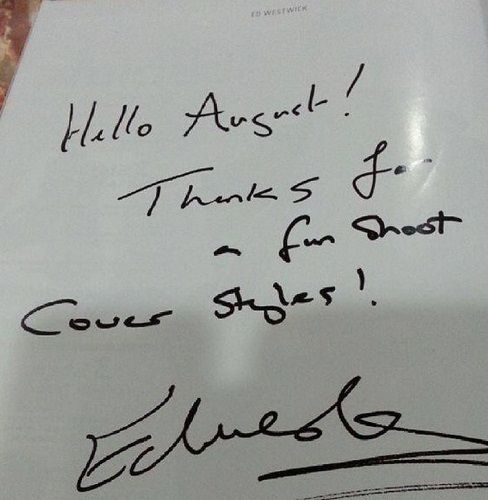 ED WESTWICK
Hello August!
Thanks for
a fun shoot
Cover Styles!